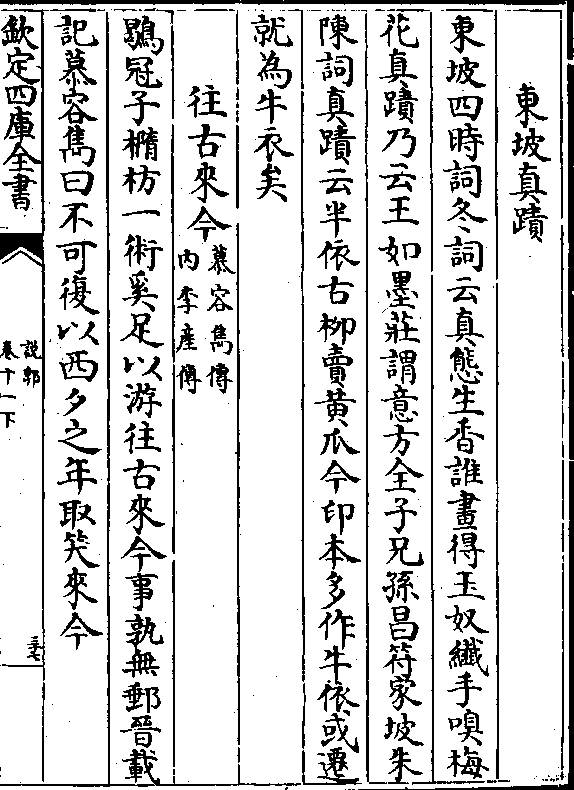 東坡真蹟
東坡四時詞冬詞云真態生香誰畫得玉奴纎手嗅梅
花真蹟乃云王如墨莊謂意方全子兄孫昌符家坡朱
陳詞真蹟云半依古栁賣黄𤓰今印本多作牛依或遷
就為牛衣矣
往古來今
慕容雋傳
内李産傳
鶡冠子櫝枋一術奚足以游往古來今事孰無郵晉載
記慕容雋曰不可復以西夕之年取笑來今
欽定四庫全書
說郛
卷十一下